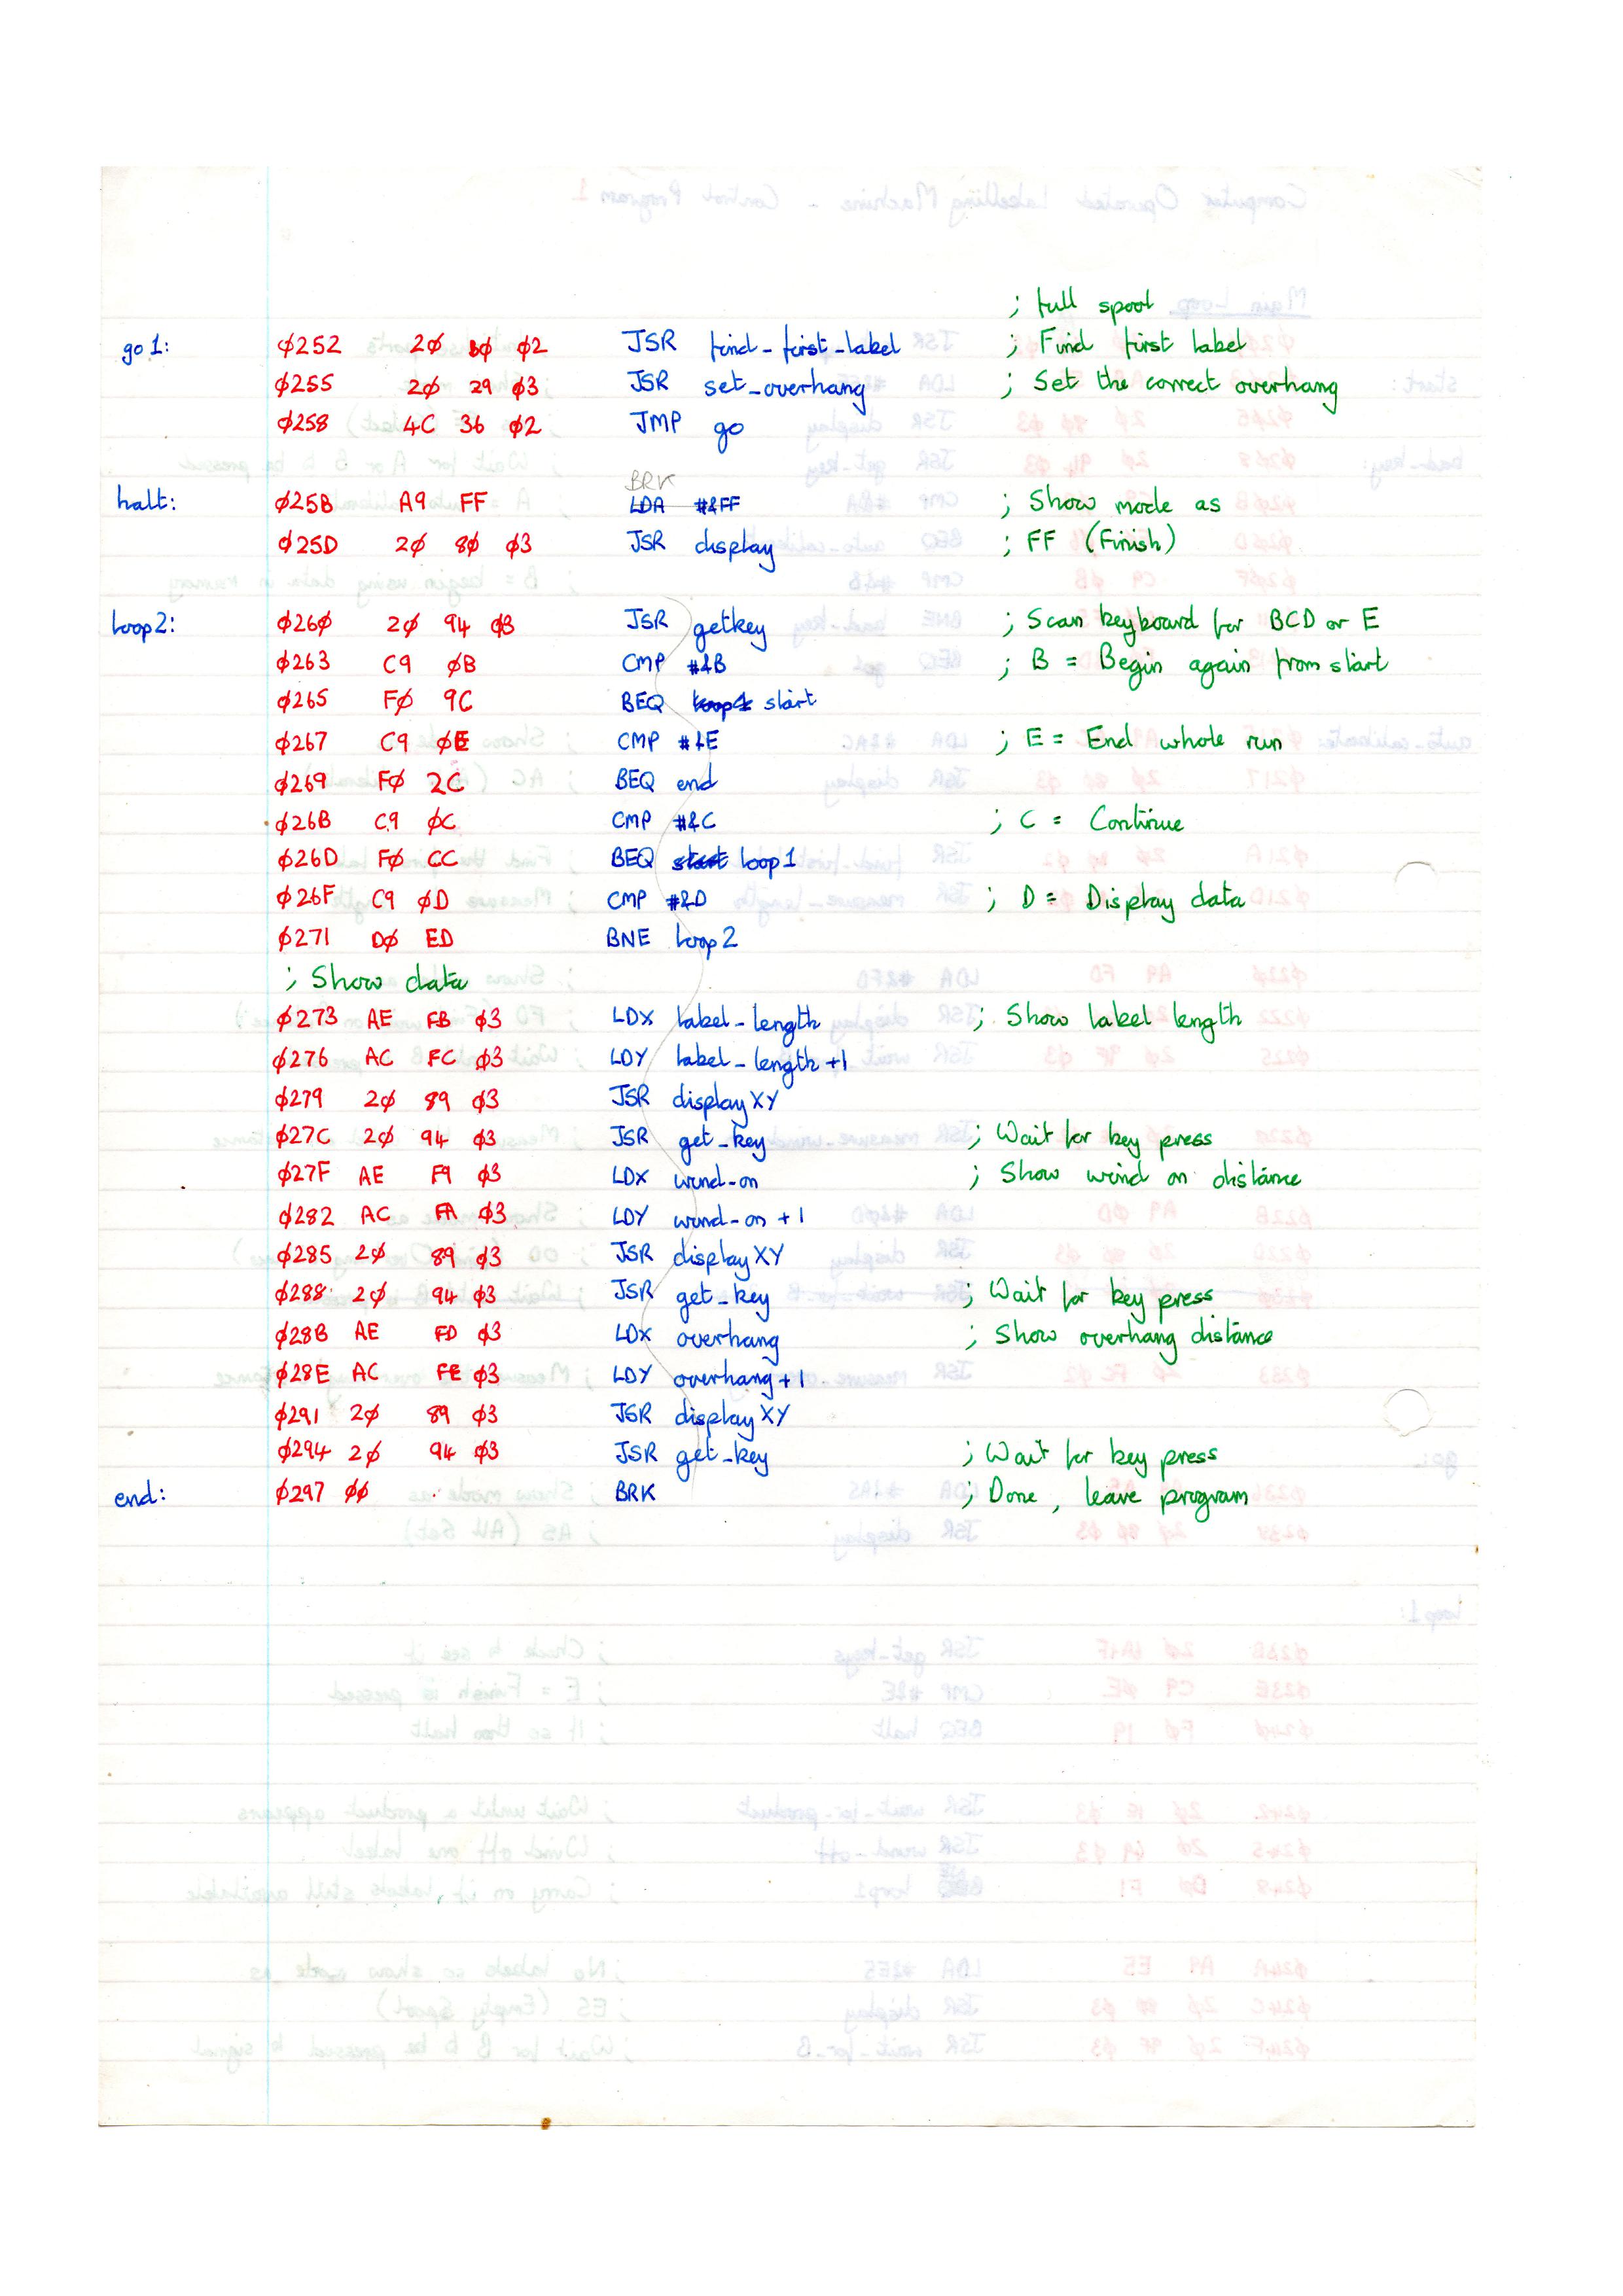 ; full spool
go1: ø252 2ø BØ ø2 JSR find_first_label ; Find first label
ø255 2ø 29 ø3 JSR set_overhang ; Set the correct overhang
ø258 4C 36 ø2 JMP go
BRK
halt: ø25B A9 FF LDA #&FF ; Show mode as
ø25D 2ø 8ø ø3 JSR display ; FF (Finish)
loop2: ø26ø 2ø 94 ø3 JSR getkey ; Scan keyboard for BCD or E
ø263 C9 øB CMP #&B ; B = Begin again from start
ø265 Fø 9C BEQ loop1 start
ø267 C9 øE CMP #&E ; E = End whole run
ø269 Fø 2C BEQ end
ø26B C9 øC CMP #&C ; C = Continue
ø26D Fø CC BEQ start loop1
ø26F C9 øD CMP #&D ; D = Display data
ø271 Dø ED BNE loop2
; Show data
ø273 AE FB ø3 LDX label_length ; Show label length
ø276 AC FC ø3 LDY label_length+1
ø279 2ø 89 ø3 JSR displayXY
ø27C 2ø 94 ø3 JSR get_key ; Wait for key press
ø27F AE F9 ø3 LDX wind-on ; Show wind on distance
ø282 AC FA ø3 LDY wind-on+1
ø285 2ø 89 ø3 JSR displayXY
ø288 2ø 94 ø3 JSR get_key ; Wait for key press
ø28B AE FD ø3 LDX overhang ; Show overhang distance
ø28E AC FE ø3 LDY overhang+1
ø291 2ø 89 ø3 JSR displayXY
ø294 2ø 94 ø3 JSR get_key ; Wait for key press
end: ø297 øø BRK ; Done, leave program